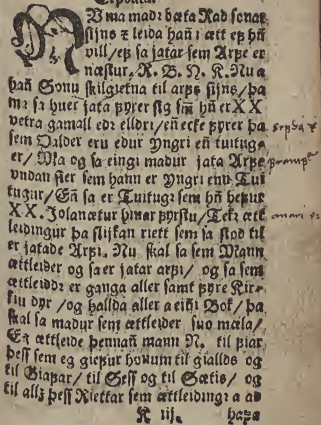 NU ma madr bæta Rad sonar
sijns z leida hañ i ætt ef hñ
vill/ef sa jatar sem Arfe er
næstur, R. B. N. K. Nu a
hañ Sonu skilgietna til arfs sijns/ þa
ma sa huer jata fyrer sig sm hñ er XX
vetra gamall edr elldri/ eñ ecke fyrer þa
sem Valder eru edur Yngri eñ tuituga
er/ Ma og sa eingi madur jata Arfe
vndan sier sem hann er Yngri enn Tui
tugur/ Eñ sa er Tuitugr sem hñ hefur
XX. Jolanætur hinar fyrstu/ Tekr ætt
leidingur þa slijkan riett sem sa stod til
er jatade Arfi. Nu skal sa sem Mann
ættleider og sa er jatar arfi/ og sa sem
ættleiddr er ganga aller samt fyre Kir-
kiu dyr / og hallda aller a eiñi Bok/ þa
skal sa madur sem ættleider suo mæla/
Eg ættleide þennañ mann N. til fiar
þess sem eg giefur honum til giallds og
til Giafar/ til Sess og til Sætis/ og
til allz þess Riettar sem ættleidingr a ad
K iij. hafa